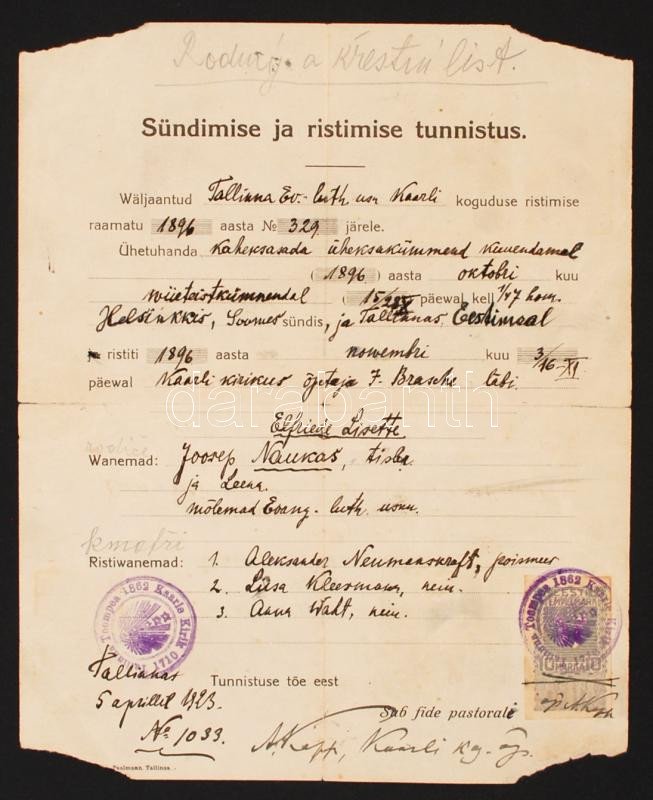 Rodný a křestní list.
Sündimise ja ristimise tunnistus.
Wäljaantud Tallinna Ev.-luth. usu Kaarli koguduse ristimise
raamatu 1896 aasta № 329 järele.
Ühetuhanda kaheksasada üheksakümmend kuuendamal
(1896) aasta oktobri kuu
wiieteistkümnendal (15/28) päewal kell 1/27 hom.
Helsinkkis, Soomes sündis, ja Tallinnas, Eestimaal
ja ristiti 1896 aasta nowembri kuu 3/16-XI
päewal Kaarli kirikus õpetaja F. Brasche läbi.
Elfriede Lisette
rodiče
Wanemad: Joosep Naukas, tisler
ja Leena
mõlemad Evang. luth. usu.
kmotři
Ristiwanemad: 1. Aleksander Neumannkraft, poismees
2. Liisa Kleesmann, nein.
3. Anna Waht, nein.
Toompea 1862 Kaarla Kirik 1710 Tallinna
Toompea 1862 Kaarla Kirik 1710 Tallinna
EESTI
10 MARKA 10
Tallinnas
5 aprillil 1923.
Tunnistuse tõe eest
№ 1033.
Sub fide pastorali
A. Kapp, Kaarli kog. õp.
õp A. Kapp
Paalmann, Tallinna.
darabanth